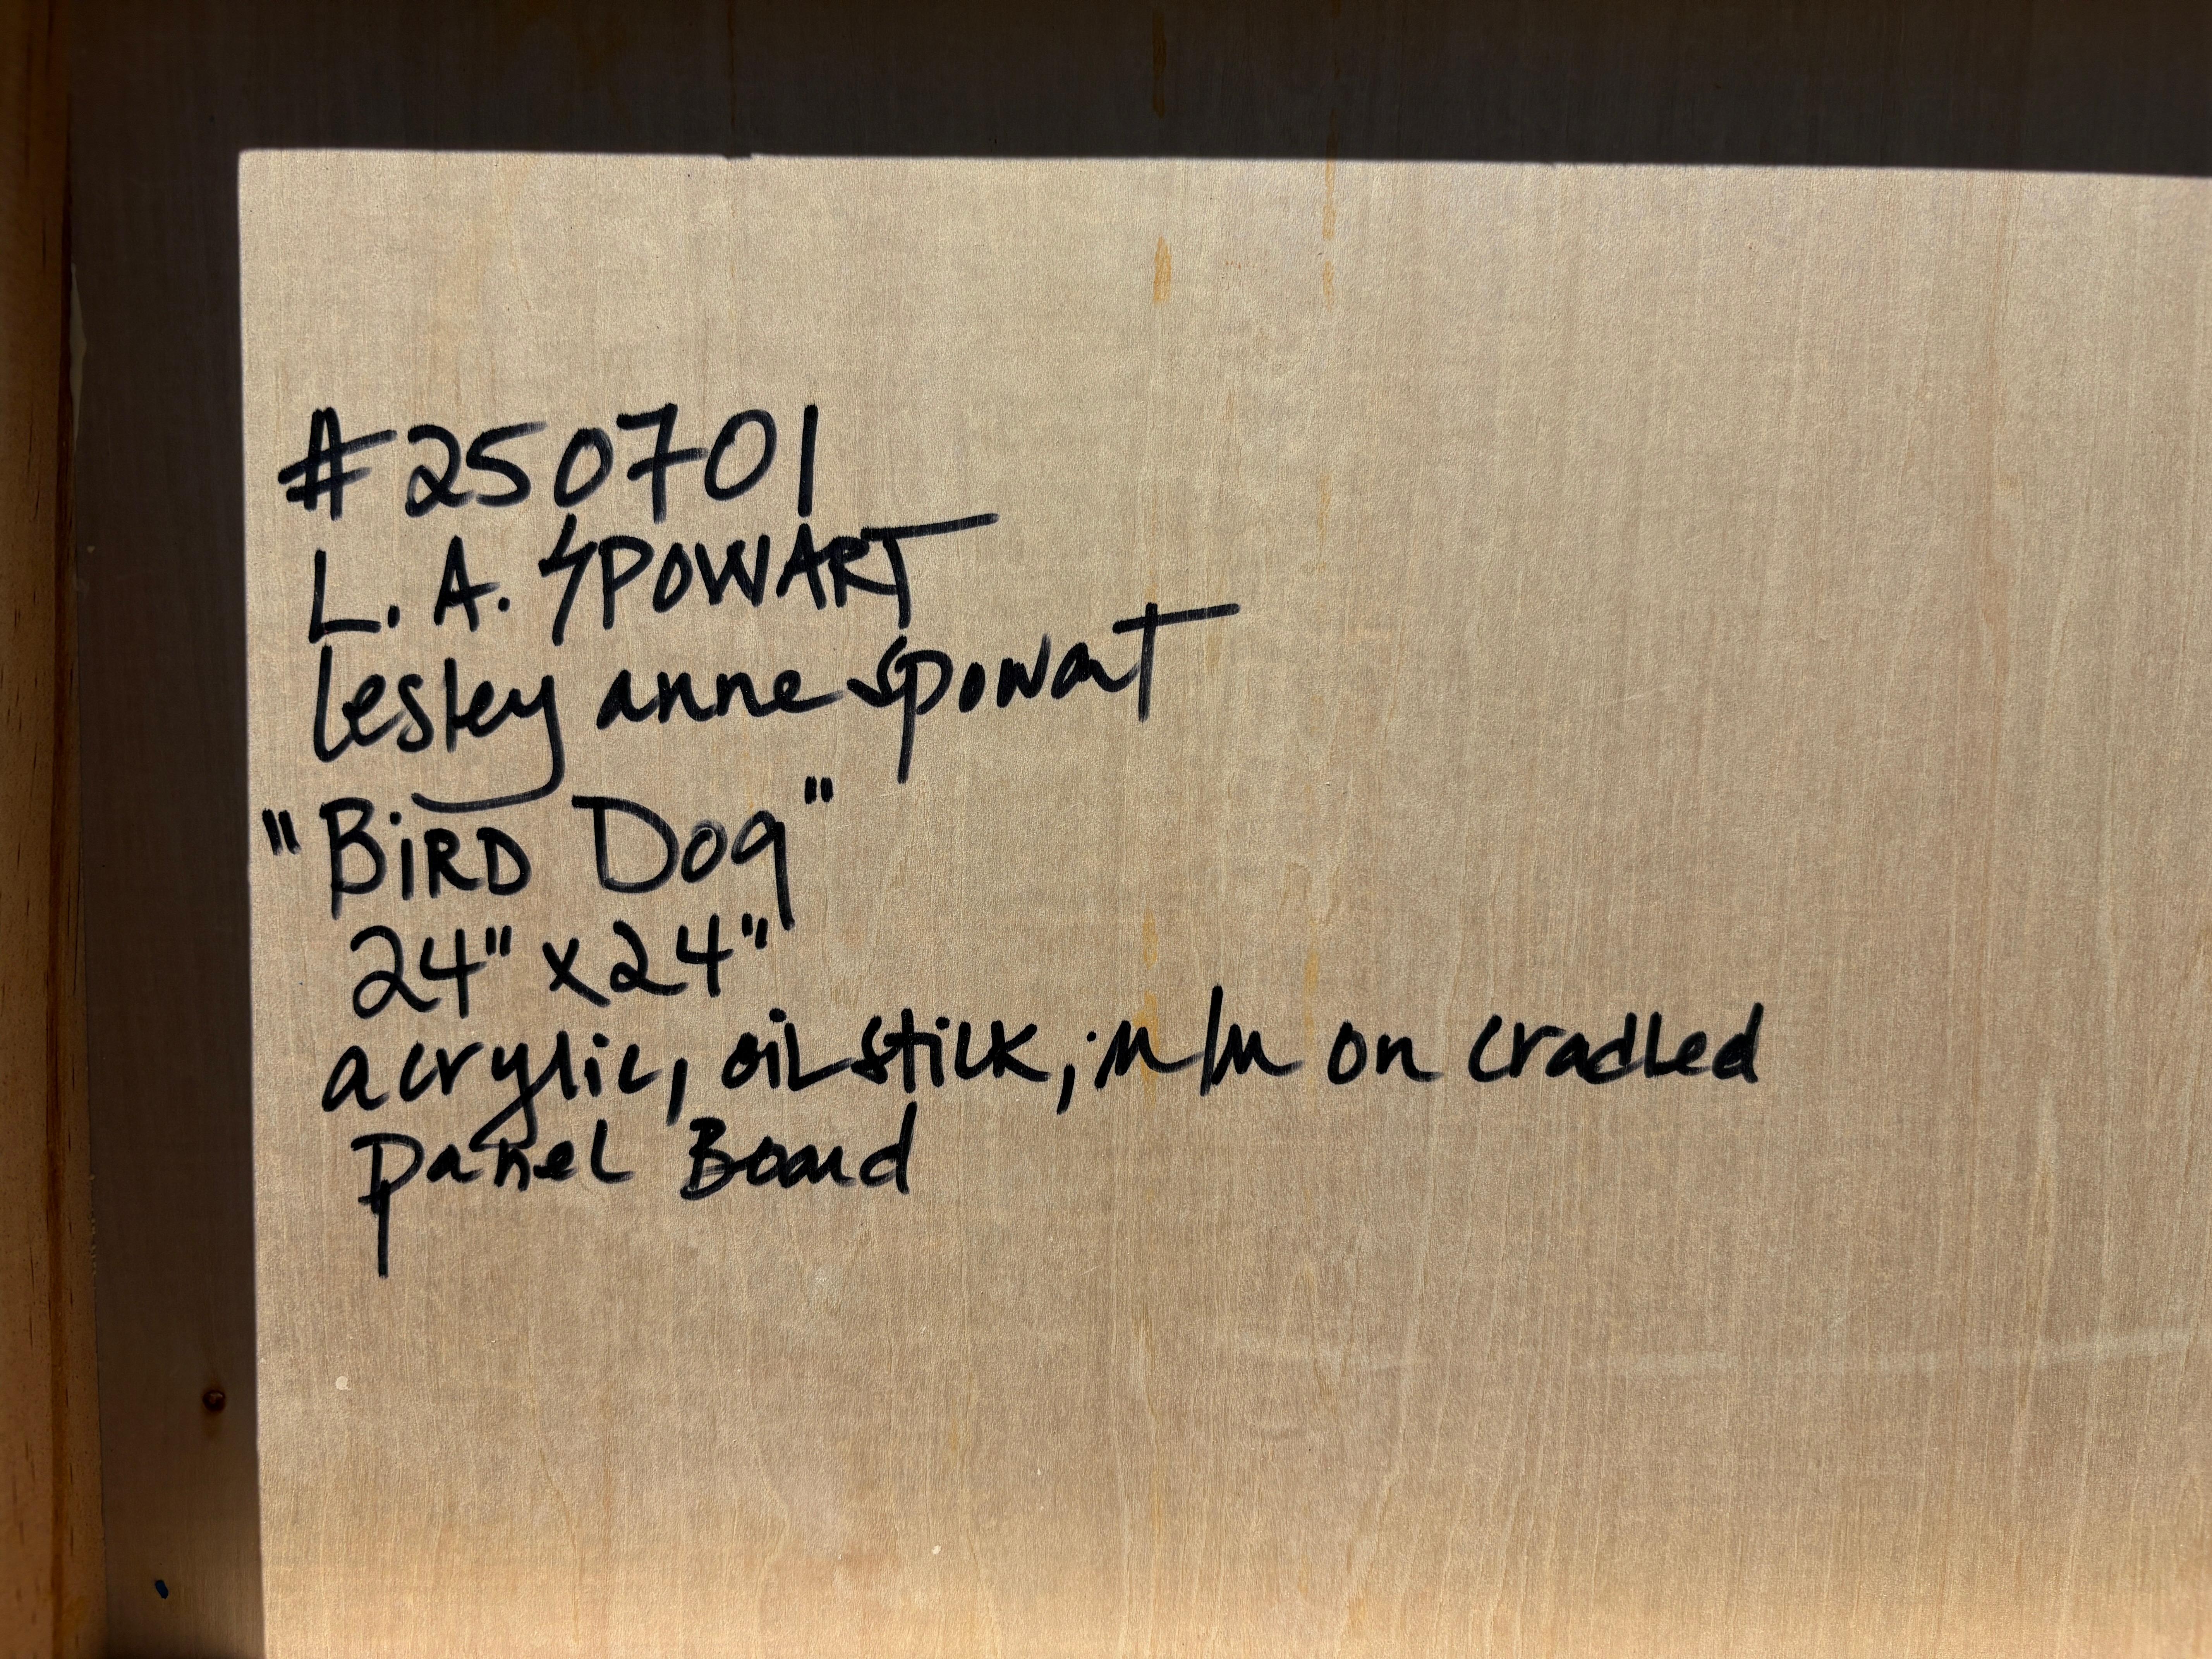 #250701
L. A. SPOWART
Lesley anne spowart
"BiRD Dog"
24" x 24"
acrylic, oil stick, m/m on cradled
panel Board